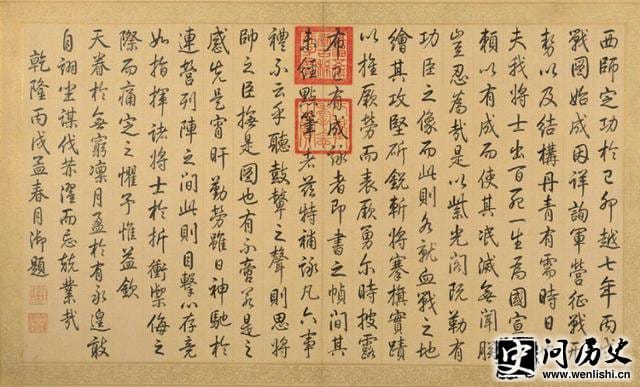 西師定功於己卯越七年丙戌
戰圖始成因詳詢軍營征戰形
勢以及結構丹青有需時日
夫我將士出百死一生為國宣
賴以有成而使其泯滅無聞朕
豈忍為哉是以紫光閣既勒有
功臣之像而此則各就血戰之地
繪其攻堅斫銳斬將搴旗實蹟
以旌厥勞而表厥勇爾時披露
布已有成詠者即書之幀間其
未經點筆者茲特補詠凡六事
禮不云乎聽鼓鼙之聲則思將
帥之臣撫是圖也有不啻若是之
感先是宵旰勤勞雖日神馳於
連營列陣之間此則目擊心存竟
如指揮諸將士於折衝禦侮之
際而痛定之懼予惟益欽
天眷於無窮凜月盈於有永遑敢
自詡坐謀伐濯而忘兢業哉
乾隆丙戌孟春月御題
史问历史
www.wenlishi.cn